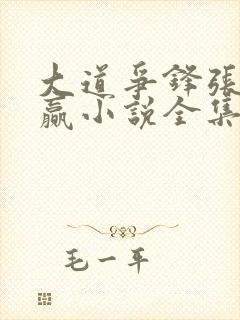 大道爭鋒張
贏小說全集
毛一平